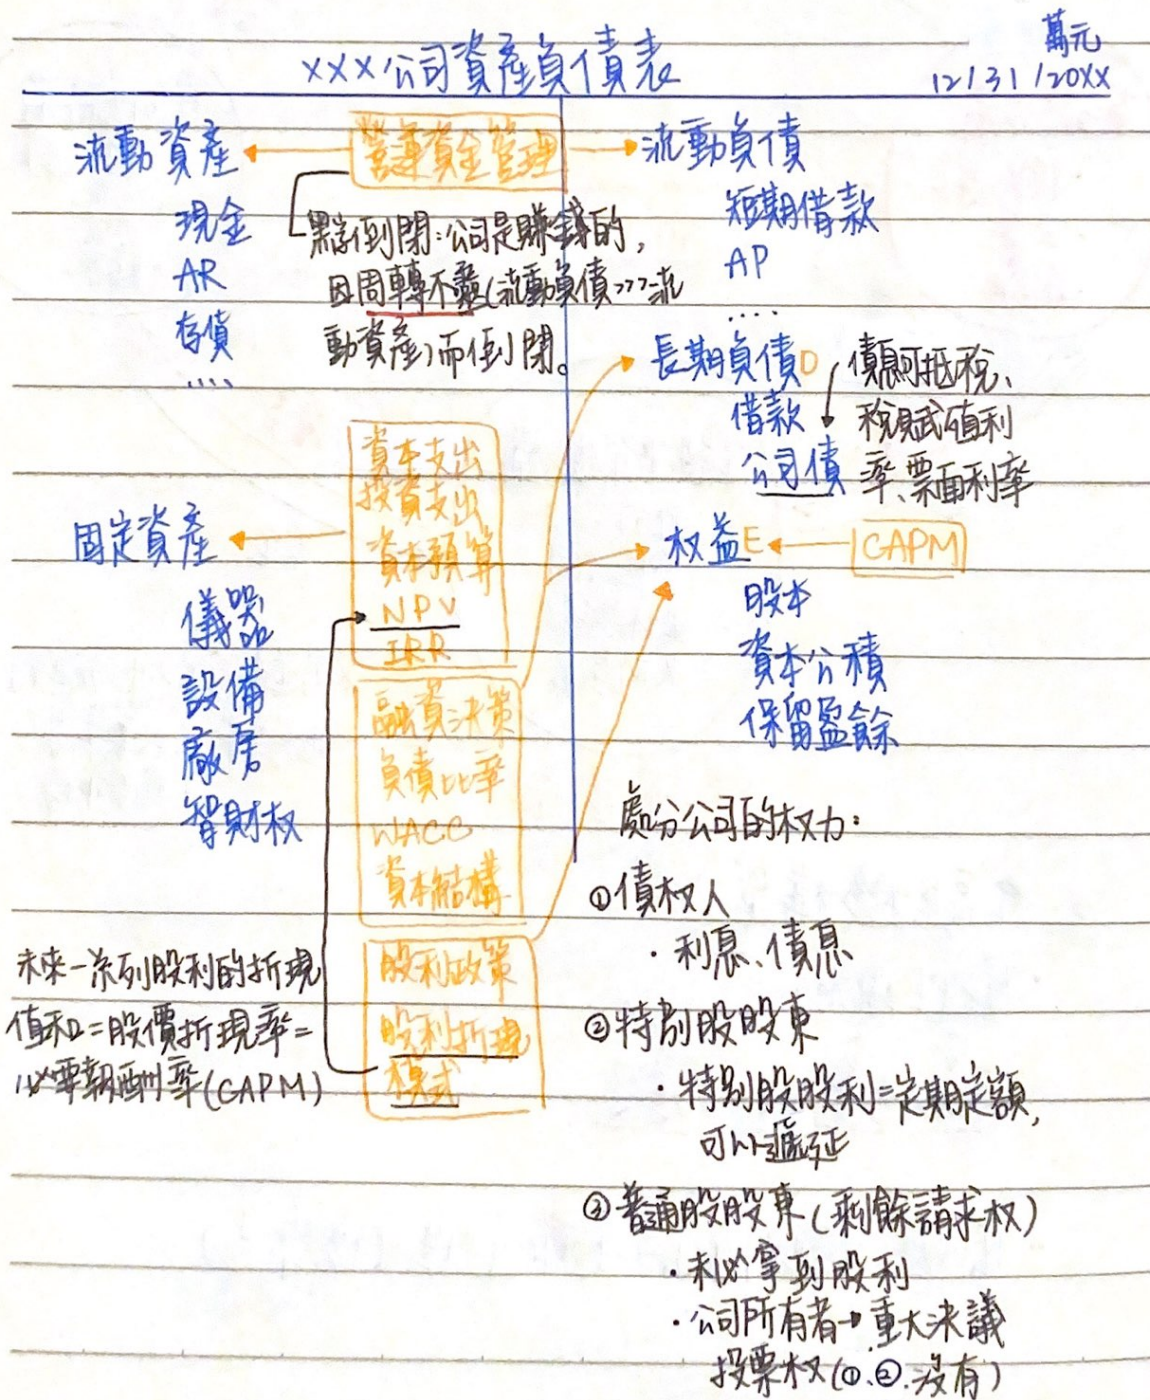 萬元
XXX公司資產負債表
12/31/20XX
流動資產
現金
AR
存債
....
營運資金管理
黑字倒閉:公司是賺錢的,
因周轉不靈(流動負債>>>流
動資產)而倒閉。
流動負債
短期借款
AP
....
長期負債D
借款
公司債
債息可抵稅、
稅賦、殖利
率、票面利率
固定資產
儀器
設備
廠房
智財权
資本支出
投資支出
資本預算
NPV
IRR
权益E
CAPM
股本
資本公積
保留盈餘
融資決策
負債比率
WACC
資本結構
股利政策
股利折現
模式
未來一系列股利的折現
值和=股價折現率=
必要報酬率(CAPM)
處分公司的权力:
①債权人
·利息、債息
②特別股股東
·特別股股利=定期定額,
可以遞延
③普通股股東(剩餘請求权)
·未必拿到股利
·公司所有者→重大決議
投票权(①、②、沒有)